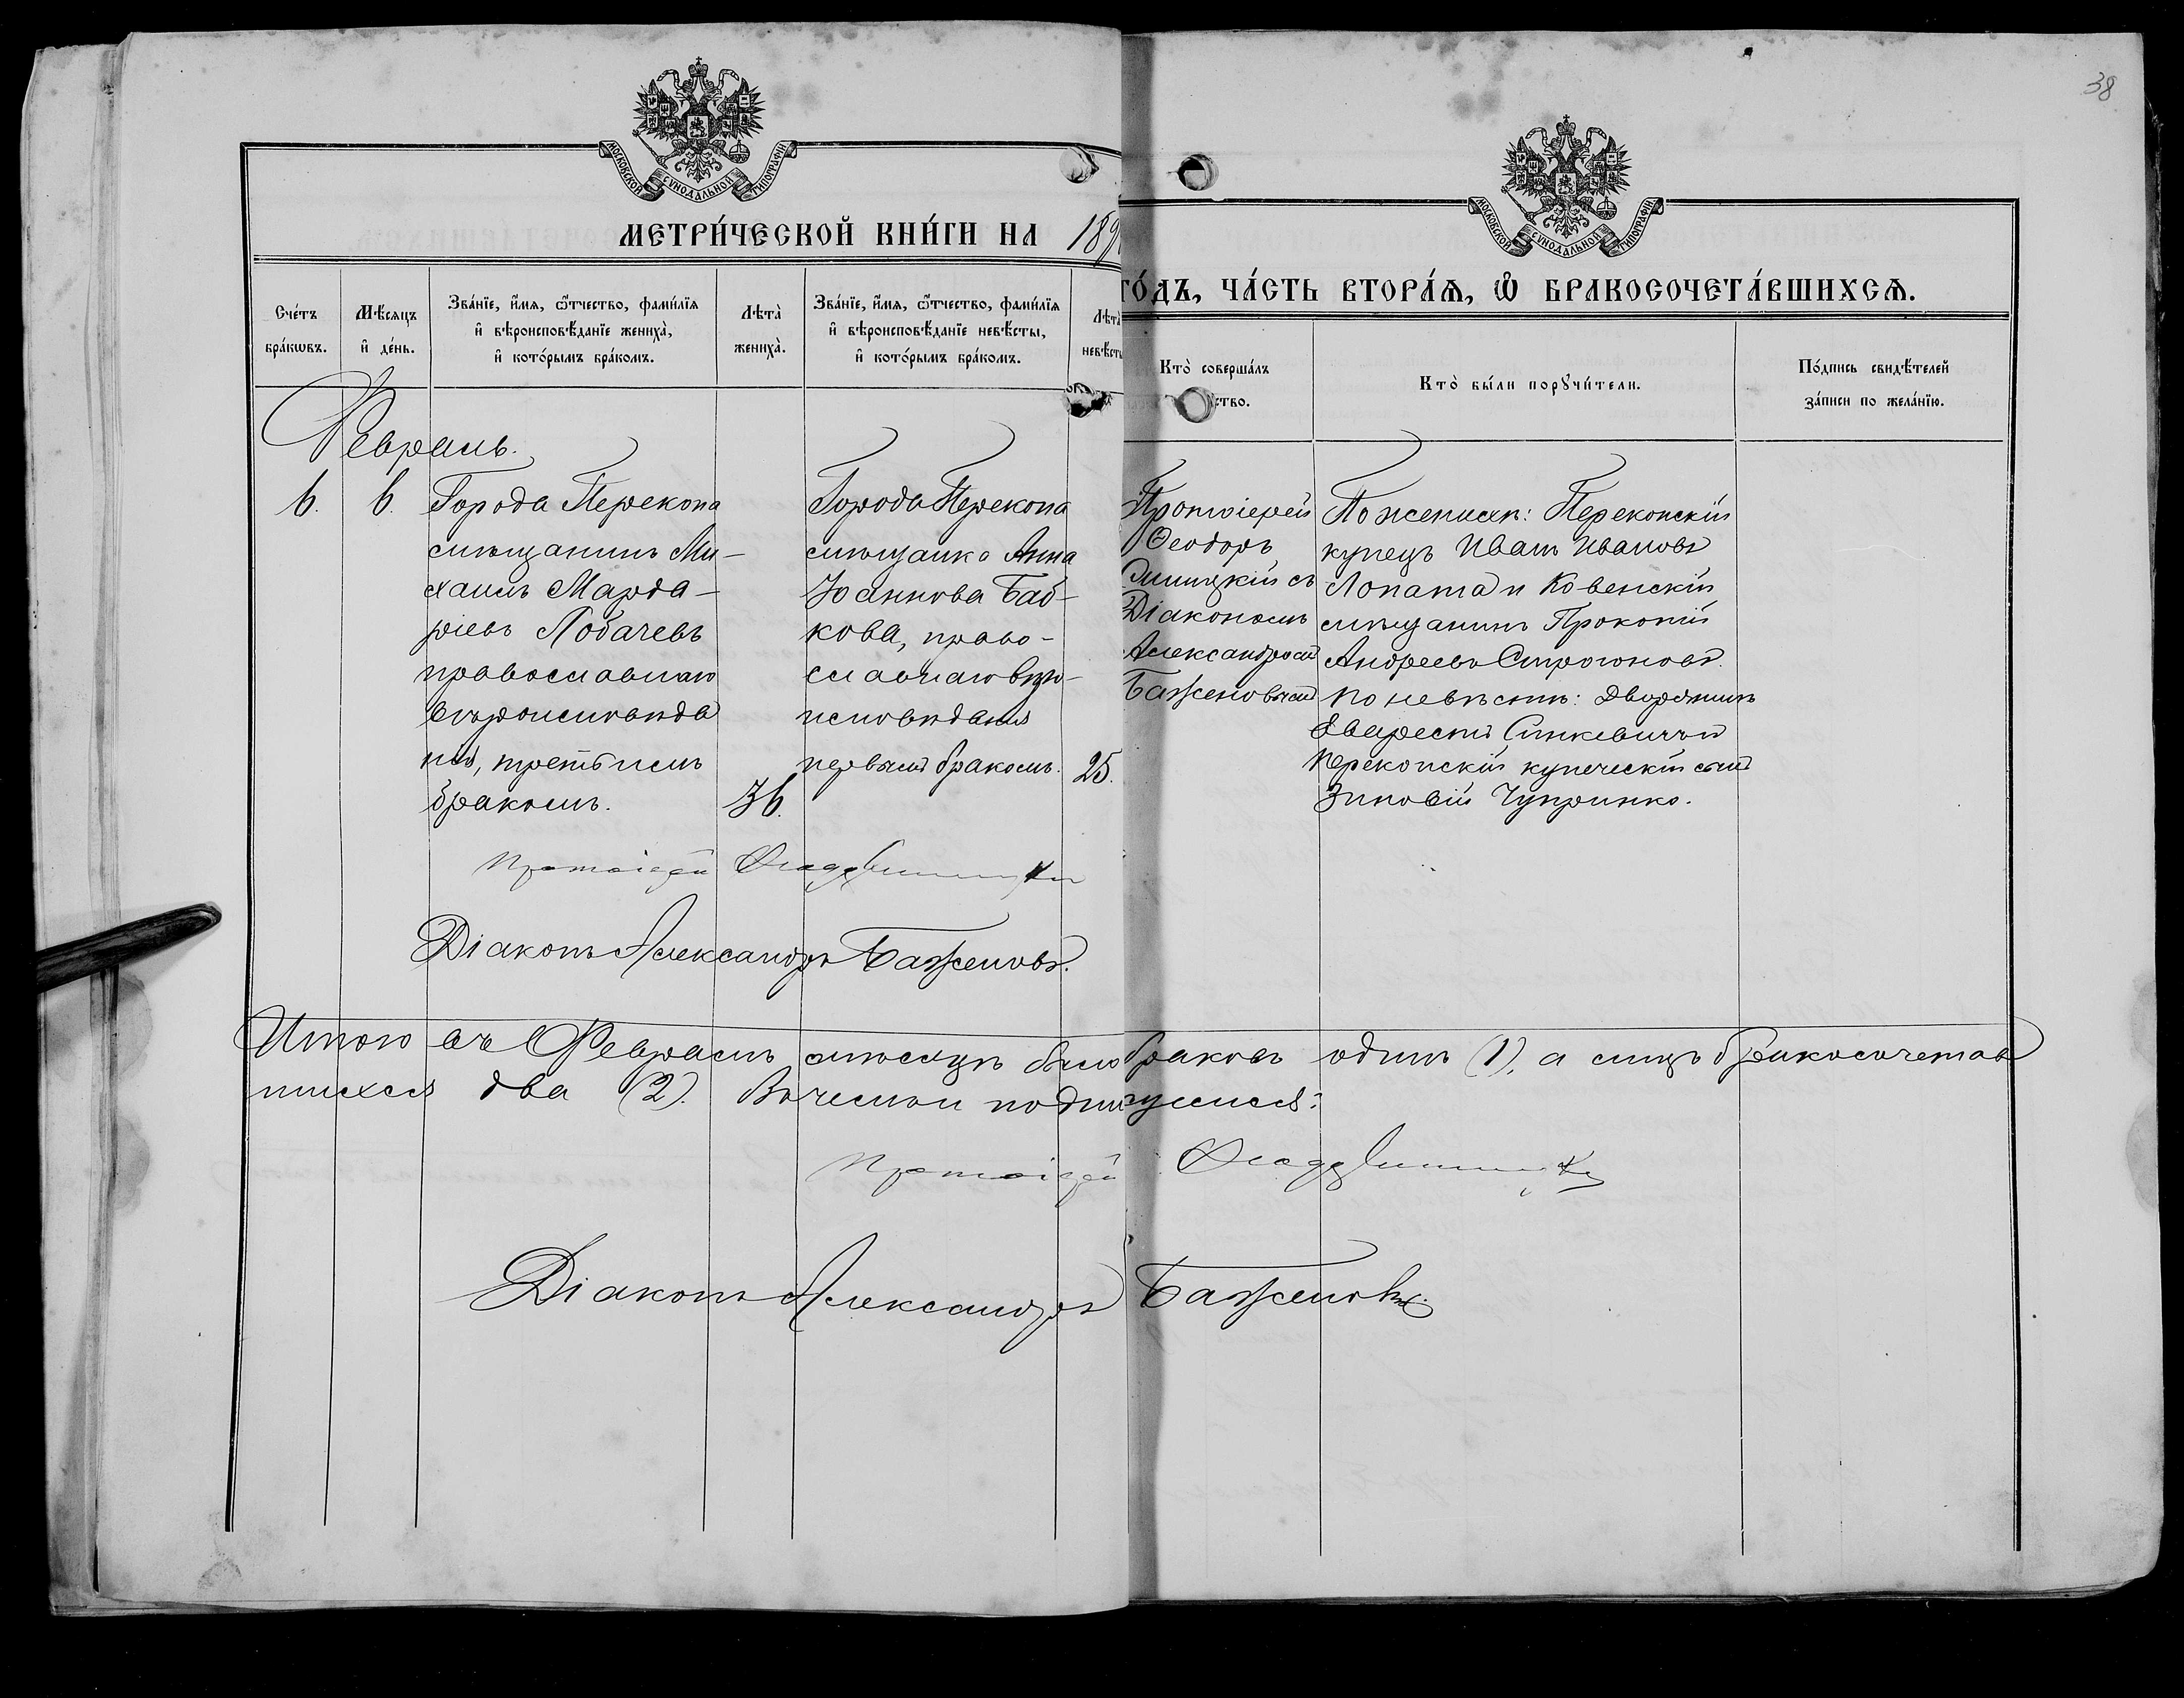 38
МОСКОВСКОЙ СѴНОДАЛЬНОЙ ТИПОГРАФІИ
МОСКОВСКОЙ СѴНОДАЛЬНОЙ ТИПОГРАФІИ
МЕТРИ́ЧЕСКОЙ КНИ́ГИ НА 189
ГО́ДЪ, ЧА́СТЬ ВТОРА́Ѧ, Ѽ БРАКОСОЧЕТА́ВШИХСѦ.
Сче́тъ
бра́кѡвъ.
Мѣ́сѧцъ
и҆ де́нь.
Зва́нїе, и҆́мѧ, ѻ҆́тчество, фами́лїѧ
и҆ вѣроисповѣ́данїе жениха̀,
и҆ кото́рымъ бра́комъ.
Лѣта̀
жениха̀.
Зва́нїе, и҆́мѧ, ѻ҆́тчество, фами́лїѧ
и҆ вѣроисповѣ́данїе невѣ́сты,
и҆ кото́рымъ бра́комъ.
Лѣта̀
невѣ́сты
Кто̀ соверша́лъ
ство.
Кто̀ бы́ли порꙋчи́тели.
По́дпись свидѣ́телей
за́писи по жела́нїю.
Февраль.
6.
6.
Города Перекопа
мѣщанинъ Ми-
хаилъ Марда-
ріевъ Лобачевъ
православнаго
вѣроисповѣда
нія, третьимъ
бракомъ.
36.
Города Перекопа
мѣщанка Анна
Іоаннова Баб-
кова, право-
славнаго вѣро-
исповѣданія
первымъ бракомъ.
25.
Протоіерей
Ѳеодоръ
съ
Діакономъ
Александромъ
Баженовымъ
По женихѣ: Перекопскій
купецъ Иванъ Ивановъ
Лопата и Ковенскій
мѣщанинъ Прокопій
Андреевъ
По невѣстѣ: дворянинъ
Еварестъ Синкевичъ и
Перекопскій купеческій сынъ
Зиновій Чупринко.
Протоіерей Ѳеодоръ
Діаконъ Александръ Баженовъ.
Итого въ Февралѣ мѣсяцѣ было браковъ одинъ (1), а лицъ бракосочетав
шихся два (2). Въ чемъ и подписуемся:
Протоіерей Ѳеодоръ
Діаконъ Александръ Баженовъ.